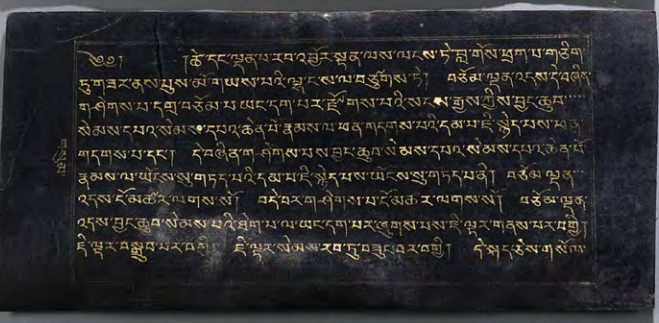 ། །ཚེ་དང་ལྡན་པ་རབ་འབྱོར་སྟན་ལས་ལངས་ཏེ་བླ་གོས་ཕྲག་པ་གཅིག་
ཏུ་གཟར་ནས་པུས་མོ་གཡས་པའི་ལྷ་ང་ས་ལ་བཙུགས་ཏེ། བཅོམ་ལྡན་འདས་དེ་བཞིན་
གཤེགས་པ་དགྲ་བཅོམ་པ་ཡང་དག་པར་རྫོགས་པའི་སངས་རྒྱས་ཀྱིས་བྱང་ཆུབ་
སེམས་དཔའ་སེམས་དཔའ་ཆེན་པོ་རྣམས་ལ་ཕན་གདགས་པའི་དམ་པ་ཇི་སྙེད་པས་ཕན་
གདགས་པ་དང་། དེ་བཞིན་གཤེགས་པས་བྱང་ཆུབ་སེམས་དཔའ་སེམས་དཔའ་ཆེན་པོ་
རྣམས་ལ་ཡོངས་སུ་གཏད་པའི་དམ་པ་ཇི་སྙེད་པས་ཡོངས་སུ་གཏད་པ་ནི། བཅོམ་ལྡན་
འདས་ངོ་མཚར་ལགས་སོ། བདེ་བར་གཤེགས་པ་ངོ་མཚར་ལགས་སོ། བཅོམ་ལྡན་
འདས་བྱང་ཆུབ་སེམས་པའི་ཐེག་པ་ལ་ཡང་དག་པར་ཞུགས་པས་ཇི་ལྟར་གནས་པར་བགྱི།
ཇི་ལྟར་བསྒྲུབ་པར་བགྱི། ཇི་ལྟར་སེམས་རབ་ཏུ་བཟུང་བར་བགྱི། དེ་སྐད་ཅེས་གསོལ་